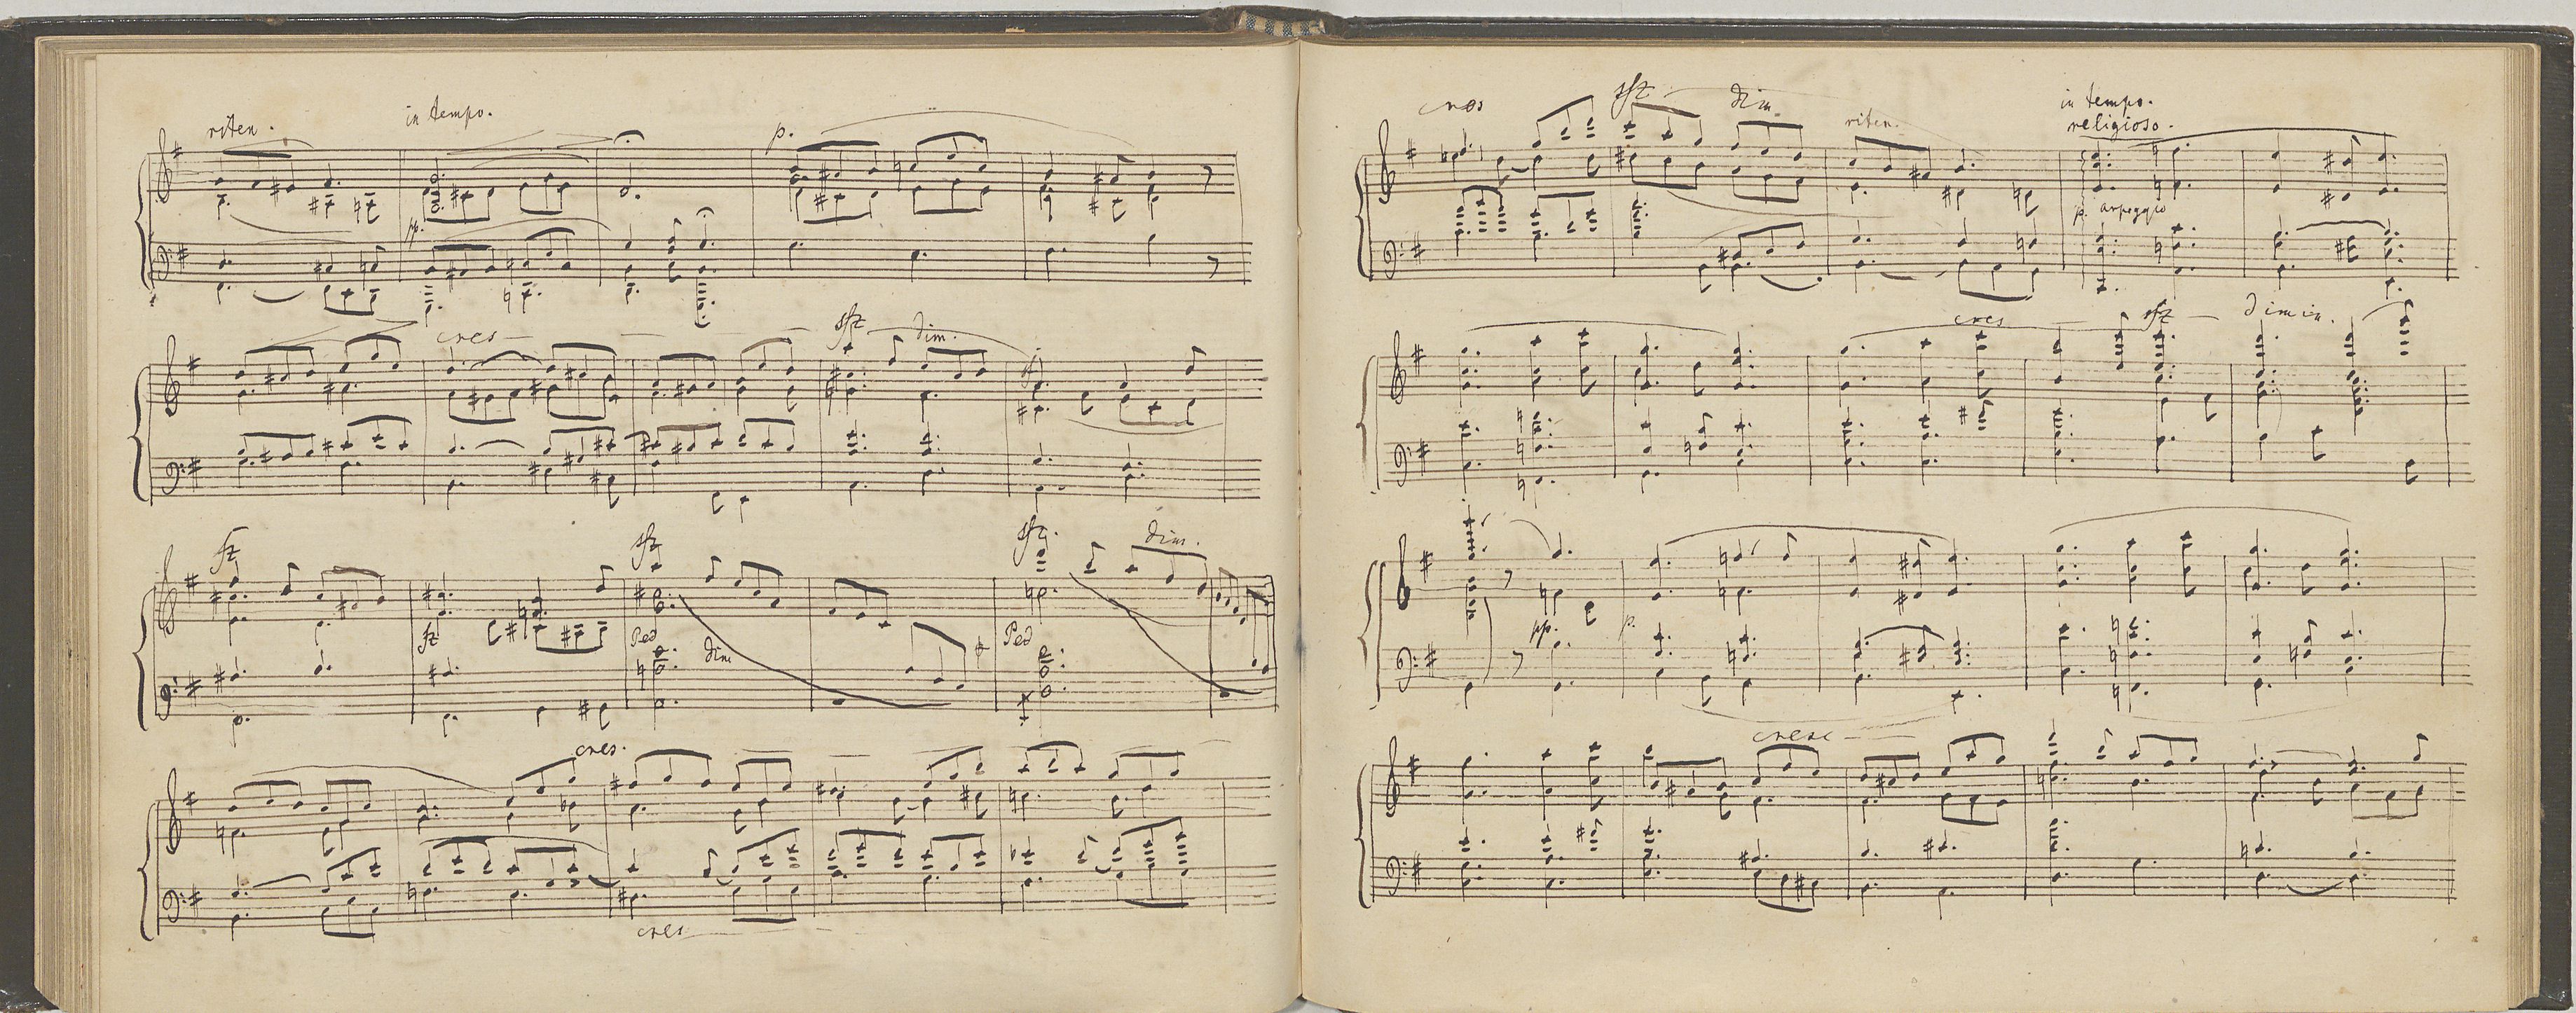 riten. in tempo.
p.
pp.
cres
sfz dim.
sf
fz sfz sfz. dim.
fz Ped dim Ped
cres.
cres
cres sfz dim riten. in tempo.
religioso.
p. arpeggio
cres sfz dimin.
pp. p.
cresc